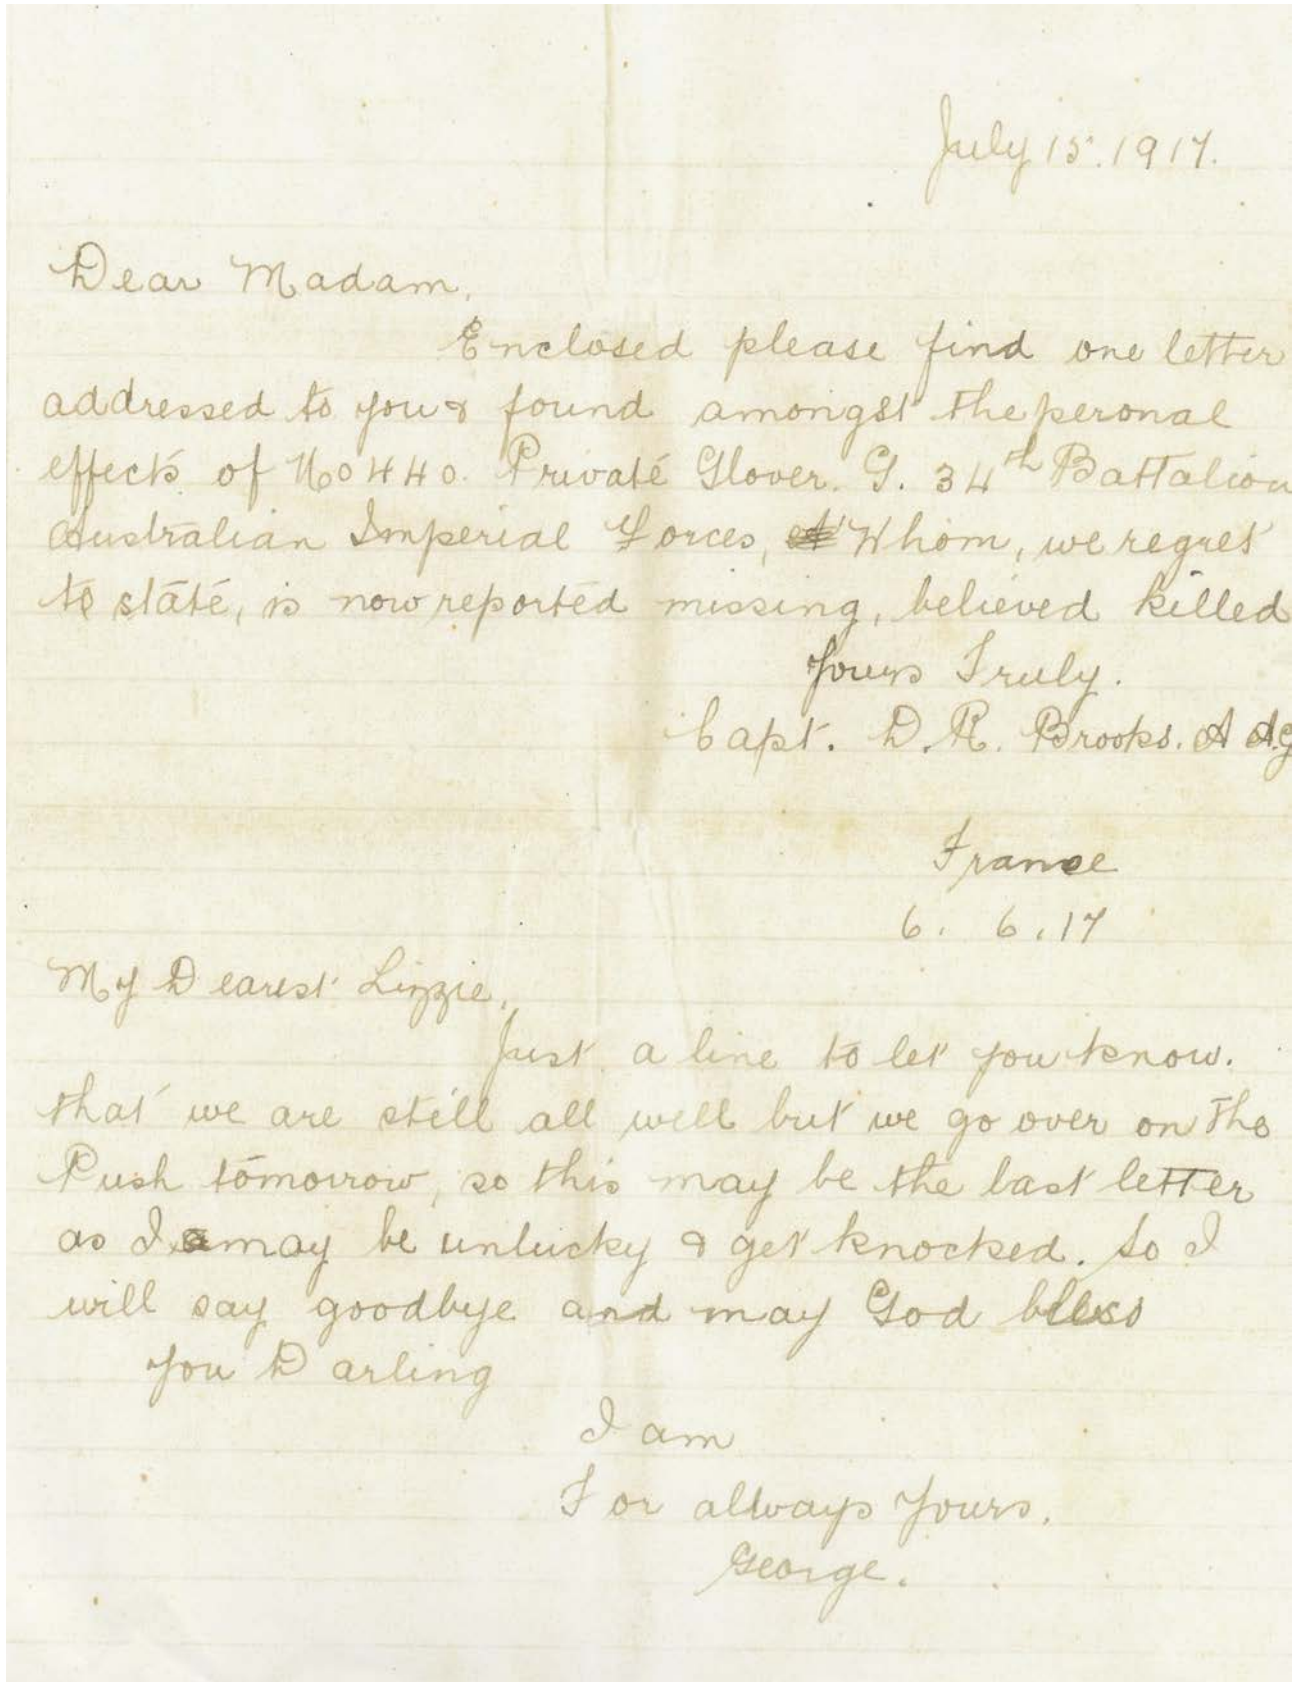 July 15. 1917.
Dear Madam,
Enclosed please find one letter
addressed to you & found amongst the peronal
effects of No 440. Private Glover. G. 34th Battalion
Australian Imperial Forces, Whom, we regret
to state, is now reported missing, believed killed
Yours Truly.
Capt. D. R. Brooks. A A.G
France
6. 6. 17
My Dearest Lizzie,
Just a line to let you know.
that we are still all well but we go over on the
Push tomorrow, so this may be the last letter
as I may be unlucky & get knocked. So I
will say goodbye and may God bless
you Darling
I am
For always Yours.
George.